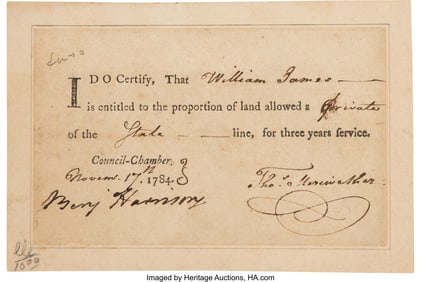 I DO Certify, That William James
is entitled to the proportion of land allowed a private
of the State line, for three years service.
Council-Chamber,
Novem. 17th 1784
Benj Harrison
Thos. Meriwether
1000
Imaged by Heritage Auctions, HA.com